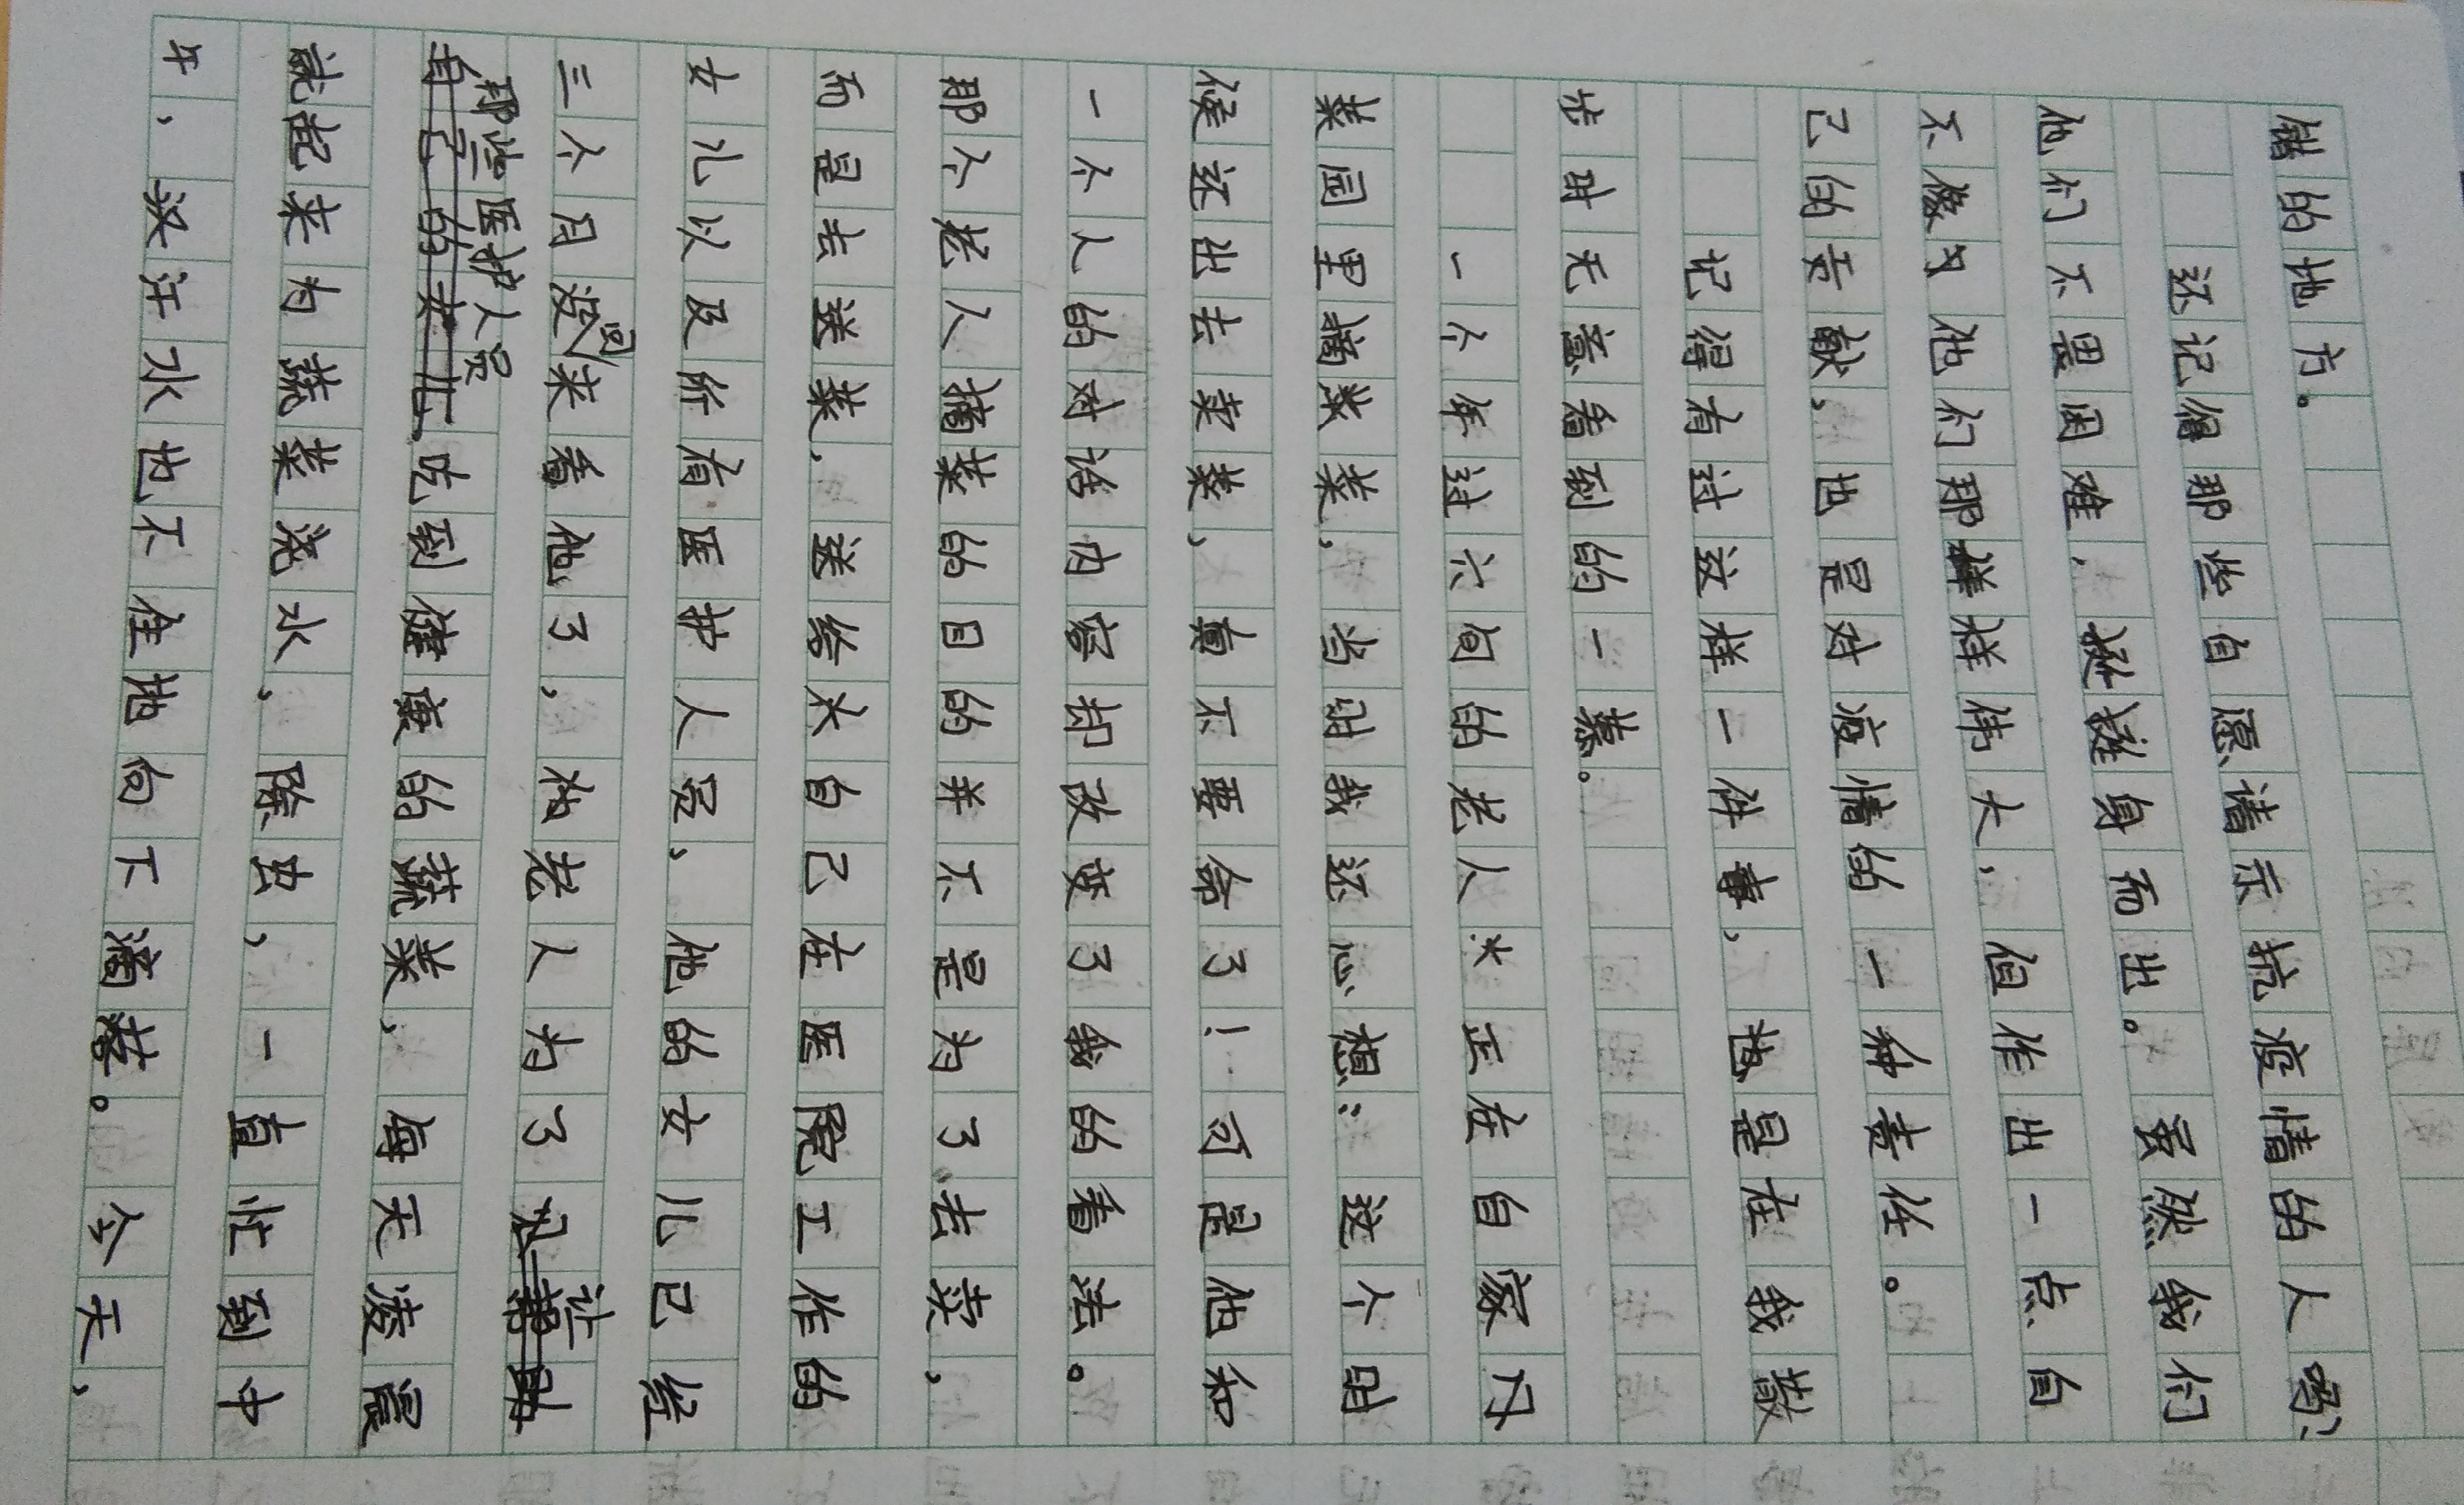 错的地方。
还记得那些自愿请示抗疫情的人吗?
他们不畏困难,挺身而出。虽然我们
不像他们那样伟大,但作出一点自
己的贡献,也是对疫情的一种责任。
记得有过这样一件事,也是在我散
步时无意看到的一幕。
一个年过六旬的老人正在自家
菜园里摘菜,当时我还心想:这个时
候还出去卖菜,真不要命了!可是他和
一个人的对话内容却改变了我的看法。
那个老人摘菜的目的并不是为了去卖,
而是去送菜,送给自己在医院工作的
女儿以及所有医护人员,他的女儿已经
三个月没回来看他了,老人为了让
那些医护人员吃到健康的蔬菜,每天凌晨
就起来为蔬菜浇水、除虫,一直忙到中
午,汗水也不住地向下滴落。今天,